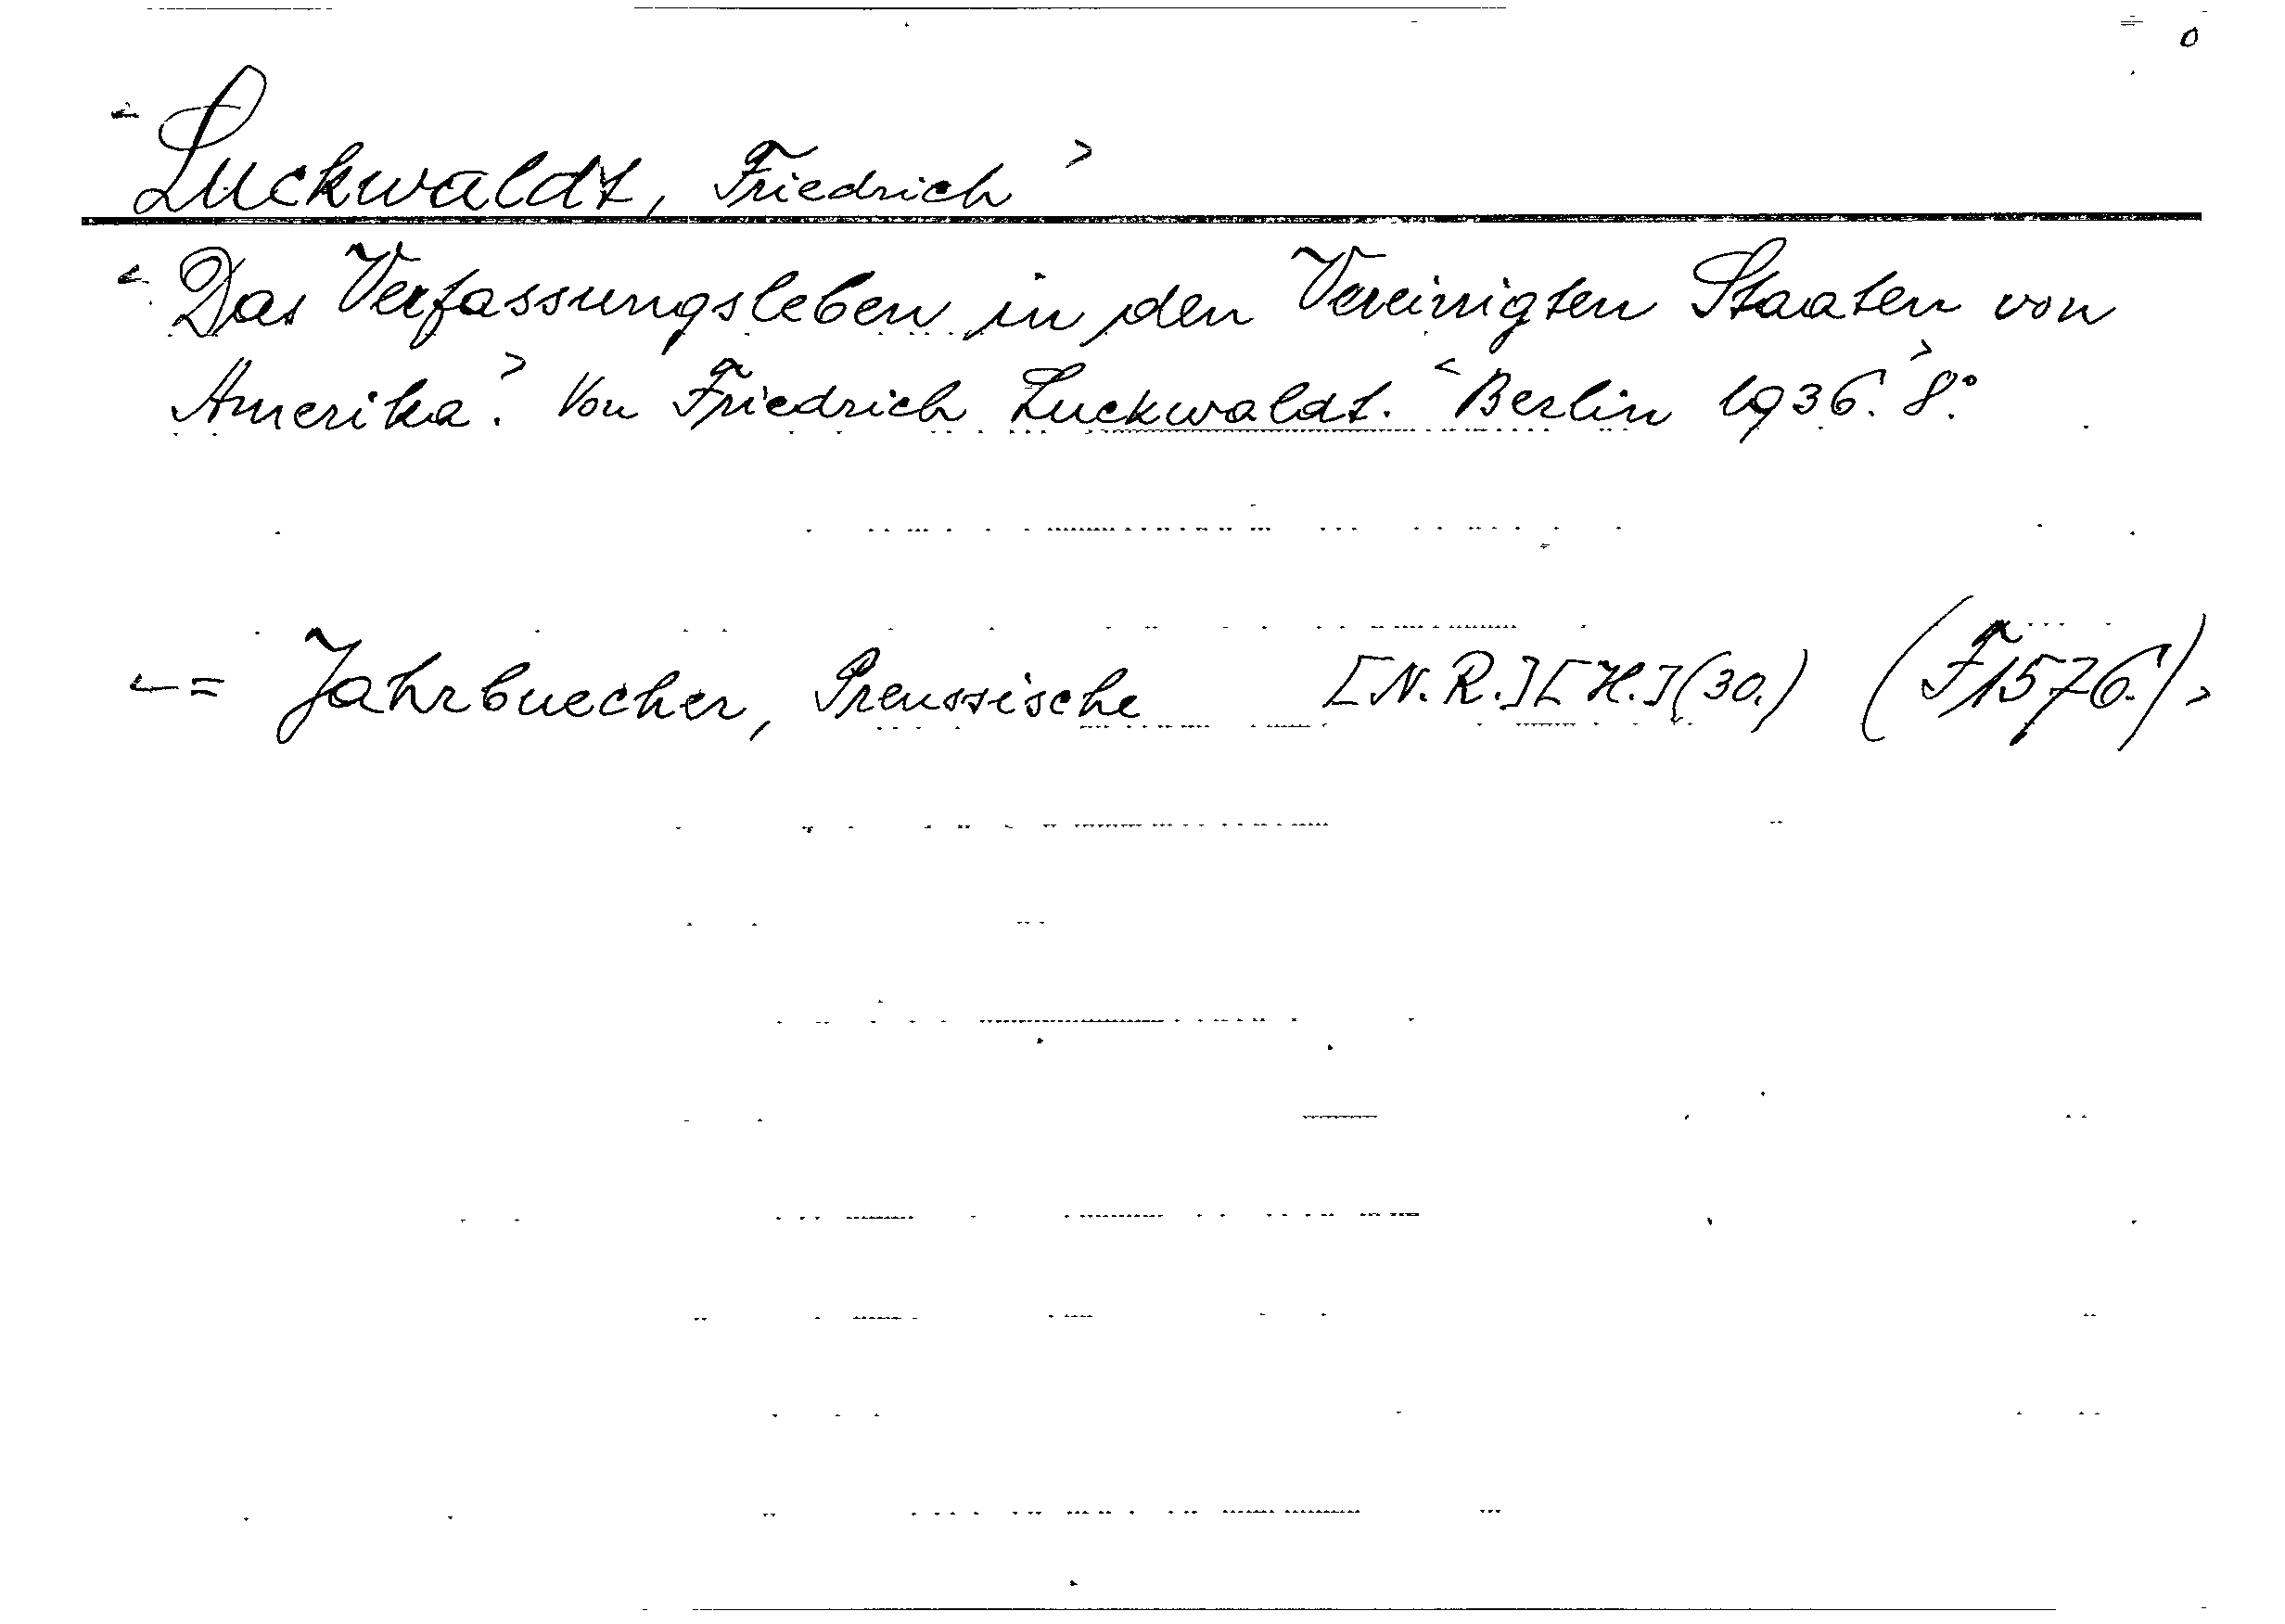 <Luckwaldt, Friedrich>
<Das Verfassungsleben in den Vereinigten Staaten von
Amerika.> Von Friedrich Luckwaldt. <Berlin 1936.> 8.°
<= Jahrbuecher, Preussische [N.R.][H.](30.) (F1576.)>